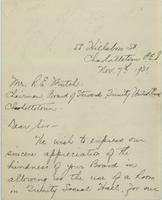 57 Hillsboro St
Charlottetown P.E.I
Nov. 7th 1931
Mr. R E
Chairman, Board of Stewards Trinity United Church
Charlottetown
Dear Sir-
We wish to express our
sincere appreciation of the
kindness of your Board in
allowing us the use of a Room
in Trinity Social Hall, for our